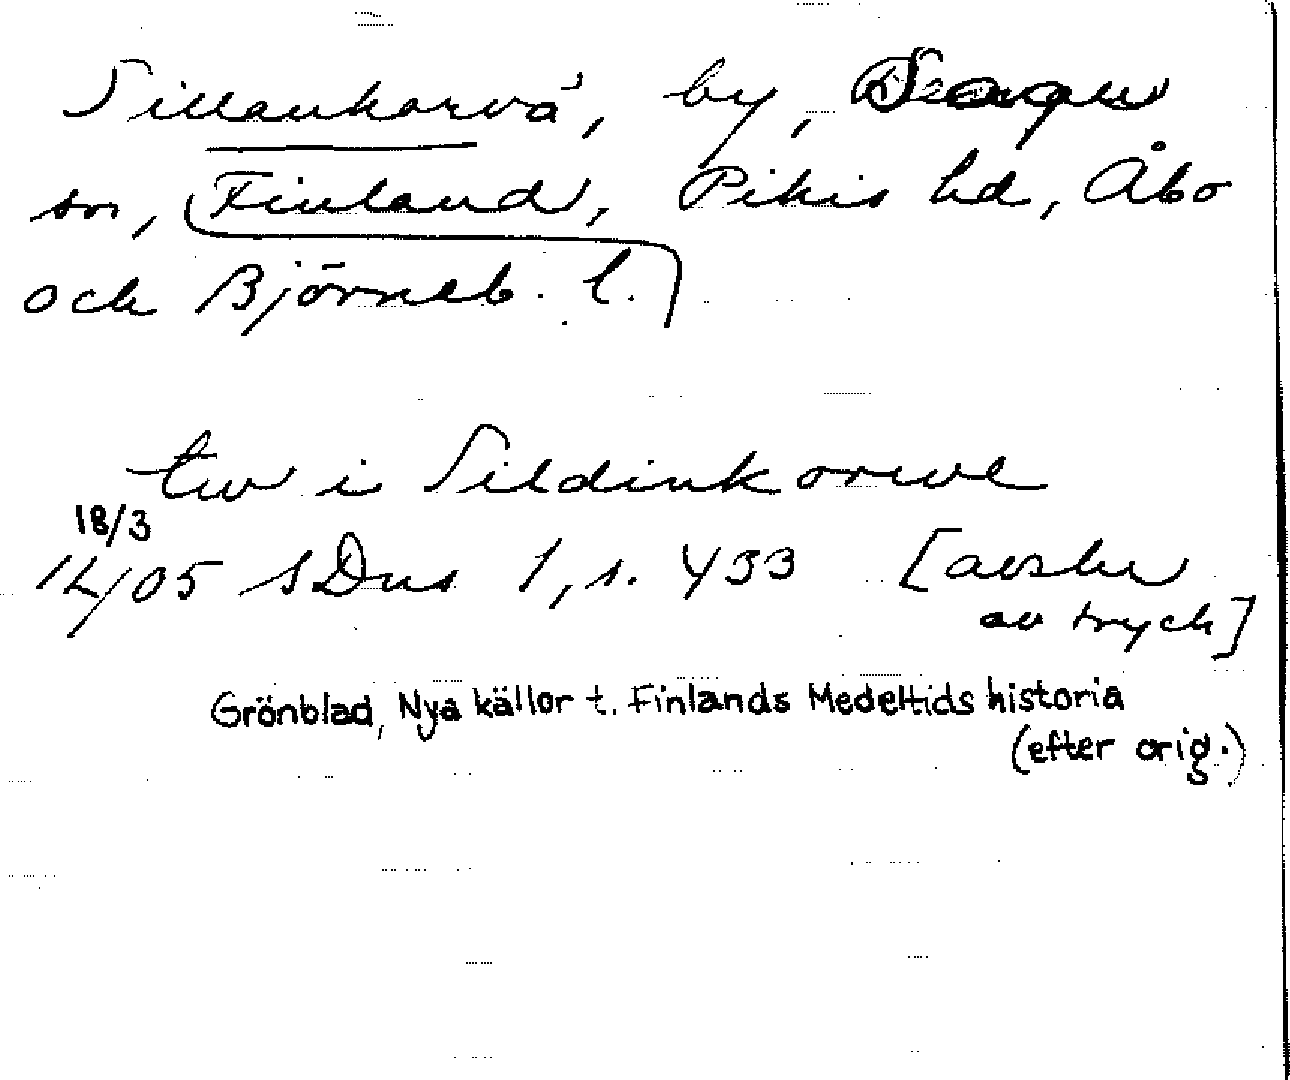 Sillankorva, by,
sn, (Finland, Pikis hd, Åbo
och Björneb. l.)
tw i Sildinkorwe
18/3
14/05 SDns 1, s. 433 [avskr
av tryck]
Grönblad, Nya källor t. Finlands Medeltids historia
(efter orig.)